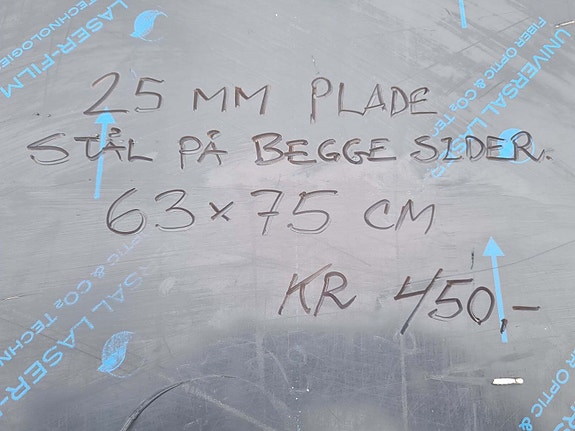 25 MM PLADE
STÅL PÅ BEGGE SIDER.
63 x 75 CM
KR 450,-
LASER-FILM
TECHNOLOGIES
UNIVERSAL LASER
FIBER OPTIC & CO2 TECHN
UNIVERSAL LASER-
FIBER OPTIC & CO2 TE